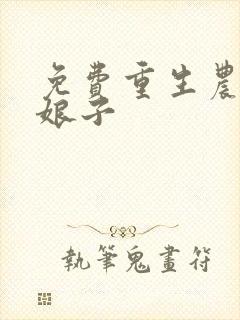 免費重生農
娘子
執筆鬼畫符